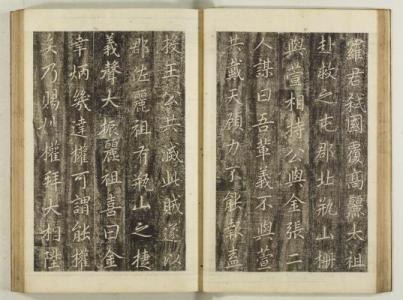 羅君弑國覆高麗太祖
赴救之屯郡北瓶山柵
與萱相持公與金張二
人謀曰吾輩義不與萱
共戴天顧力不能報盍
投王公共滅此賊遂以
郡佐麗祖有瓶山之捷
義聲大振麗祖喜曰金
幸炳幾達權可謂能權
矣乃賜姓權拜大相陞